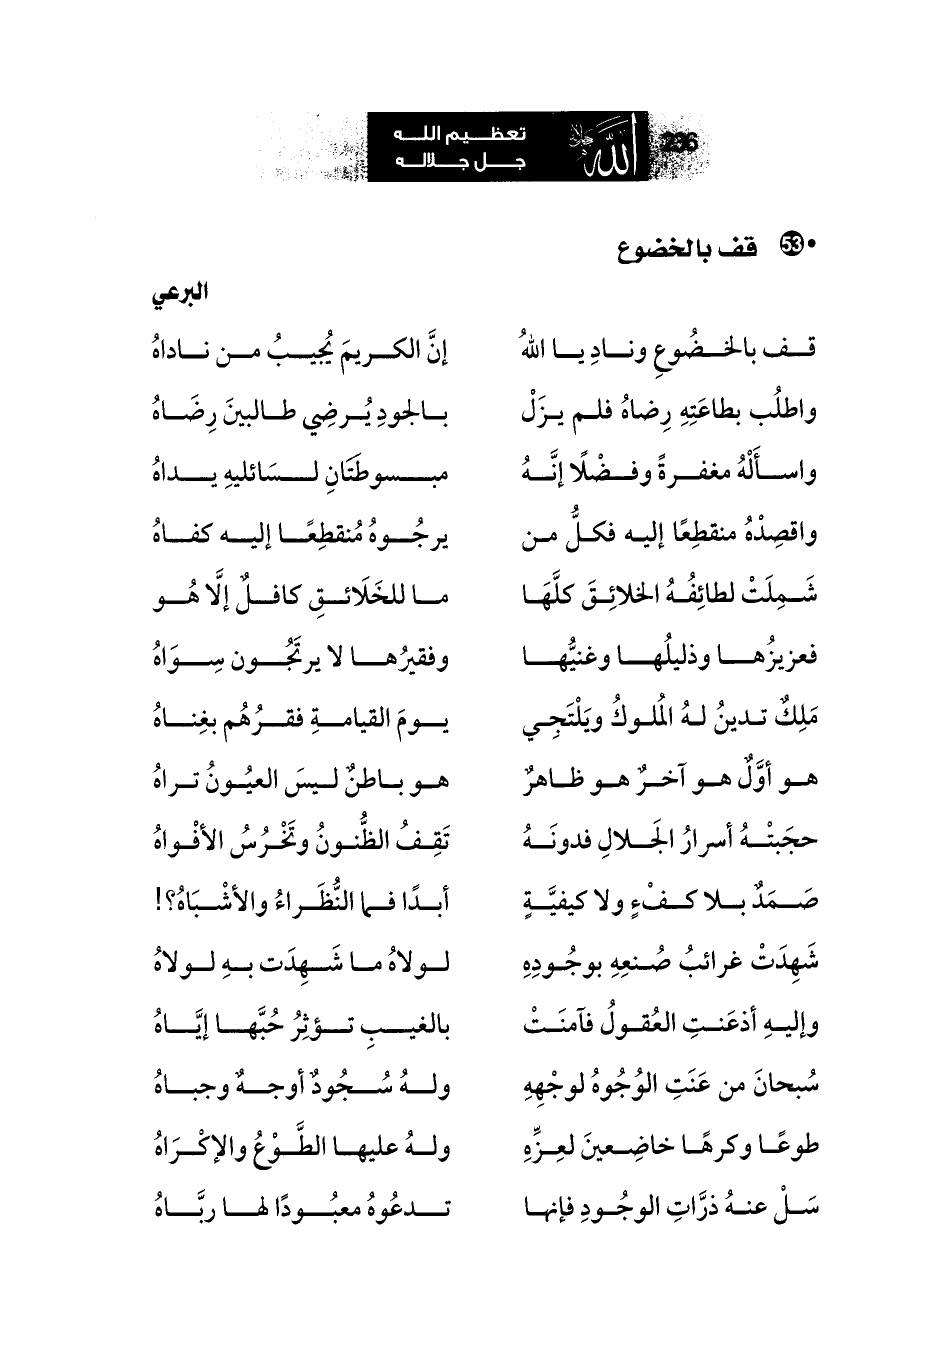 236
الله جل جلاله
تعظيم الله
جل جلاله
•53 قف بالخضوع
البرعي
قف بالخضُوعِ ونادِ يا اللهُ إنَّ الكريمَ يُجيبُ من ناداهُ
واطلُب بطاعَتِهِ رِضاهُ فلم يزَلْ بالجودِ يُرضِي طالبينَ رِضَاهُ
واسألْهُ مغفرةً وفضْلًا إنَّهُ مبسوطتَانِ لسَائليهِ يداهُ
واقصِدْهُ منقطِعًا إليه فكلُّ من يرجُوهُ مُنقطِعًا إليه كفاهُ
شَمِلَتْ لطائِفُهُ الخلائِقَ كلَّهَا ما للخَلَائقِ كافلٌ إلَّا هُو
فعزيزُها وذليلُها وغنيُّها وفقيرُها لا يرتَجُون سِوَاهُ
مَلِكٌ تدينُ لهُ المُلوكُ ويَلْتَجِي يومَ القيامةِ فقرُهُم بغِناهُ
هو أوَّلٌ هو آخرٌ هو ظاهرٌ هو باطنٌ ليسَ العيُونُ تراهُ
حجَبتْهُ أسرارُ الجَلالِ فدونَهُ تَقِفُ الظُّنونُ وتَخْرُسُ الأفْواهُ
صَمَدٌ بلا كفْءٍ ولا كيفيَّةٍ أبدًا فما النُّظَراءُ والأشْبَاهُ؟!
شَهِدَتْ غرائبُ صُنعِهِ بوجُودِهِ لولاهُ ما شَهِدَت بهِ لولاهُ
وإليهِ أذعَنتِ العُقولُ فآمنَتْ بالغيبِ تؤثِرُ حُبَّها إيَّاهُ
سُبحانَ من عَنَتِ الوُجُوهُ لوجْهِهِ ولهُ سُجُودٌ أوجهٌ وجباهُ
طوعًا وكرهًا خاضِعينَ لعِزِّهِ ولهُ عليها الطَّوْعُ والإكْرَاهُ
سَلْ عنهُ ذرَّاتِ الوجُودِ فإنها تدعُوهُ معبُودًا لها ربَّاهُ